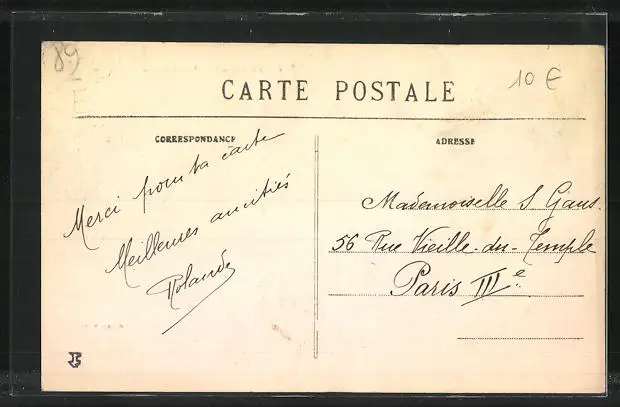 89
10 €
CARTE POSTALE
CORRESPONDANCE
ADRESSE
Merci pour ta carte
Meilleures amitiés
Rolande
Mademoiselle S Gaus.
56 Rue Vieille-du-Temple
Paris IIIe